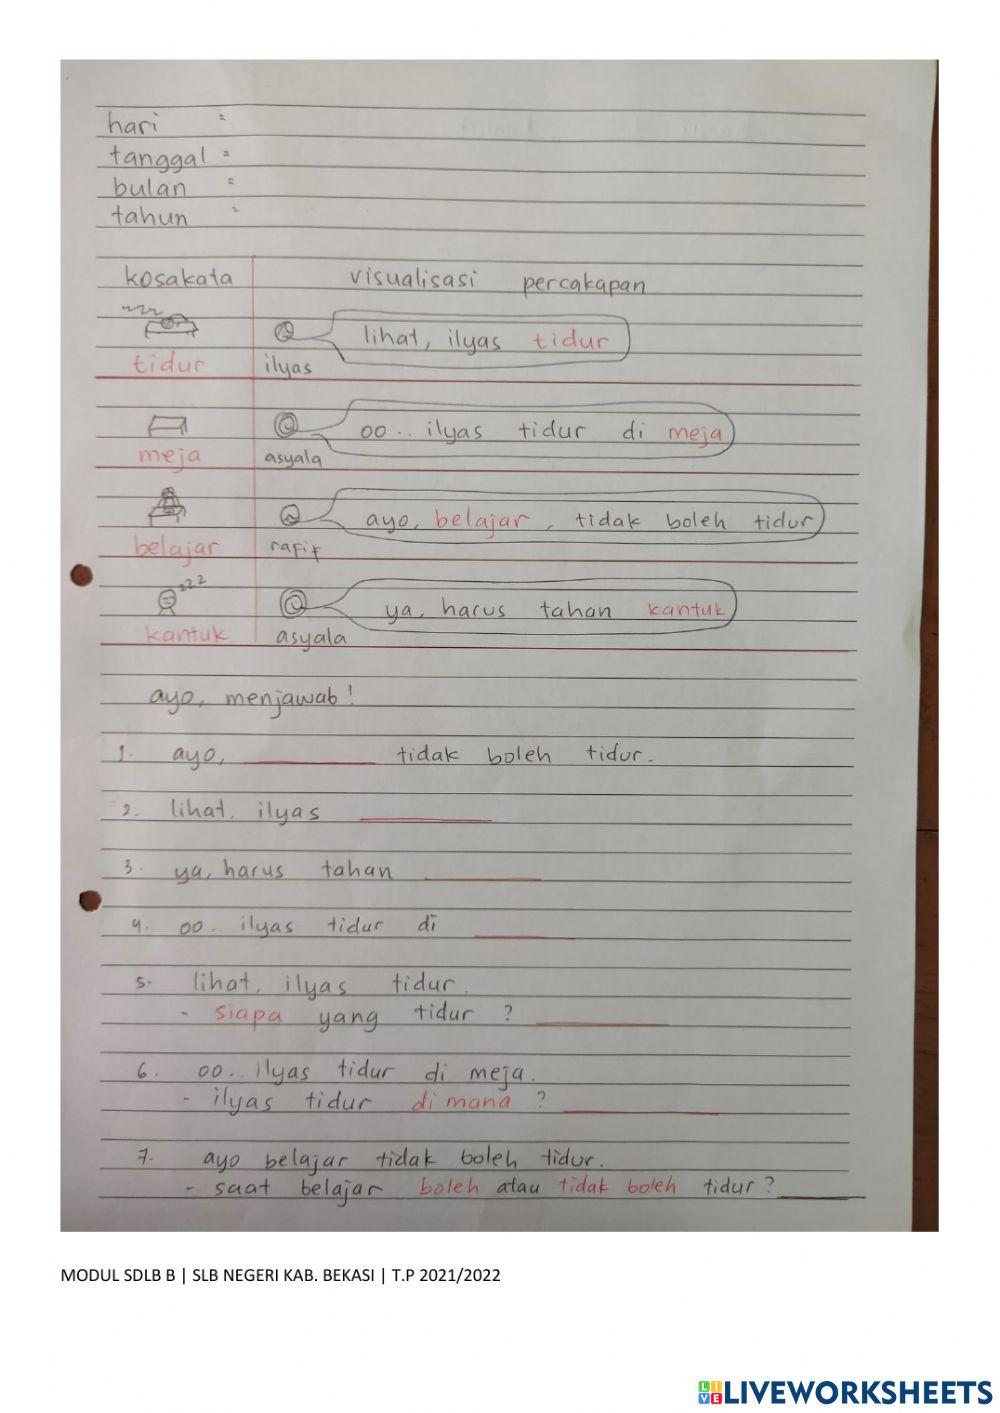 hari =
tanggal =
bulan =
tahun =
kosakata visualisasi percakapan
zzz
lihat, ilyas tidur
tidur ilyas
oo.. ilyas tidur di meja
meja asyala
ayo, belajar, tidak boleh tidur
belajar rafif
zzz
ya, harus tahan kantuk
kantuk asyala
ayo, menjawab!
1. ayo, __________ tidak boleh tidur.
2. lihat, ilyas __________
3. ya, harus tahan __________
4. oo.. ilyas tidur di __________
5. lihat, ilyas tidur.
- siapa yang tidur ? __________
6. oo.. ilyas tidur di meja.
- ilyas tidur di mana ? __________
7. ayo belajar tidak boleh tidur.
- saat belajar boleh atau tidak boleh tidur ? __________
MODUL SDLB B | SLB NEGERI KAB. BEKASI | T.P 2021/2022
LIVE LIVEWORKSHEETS